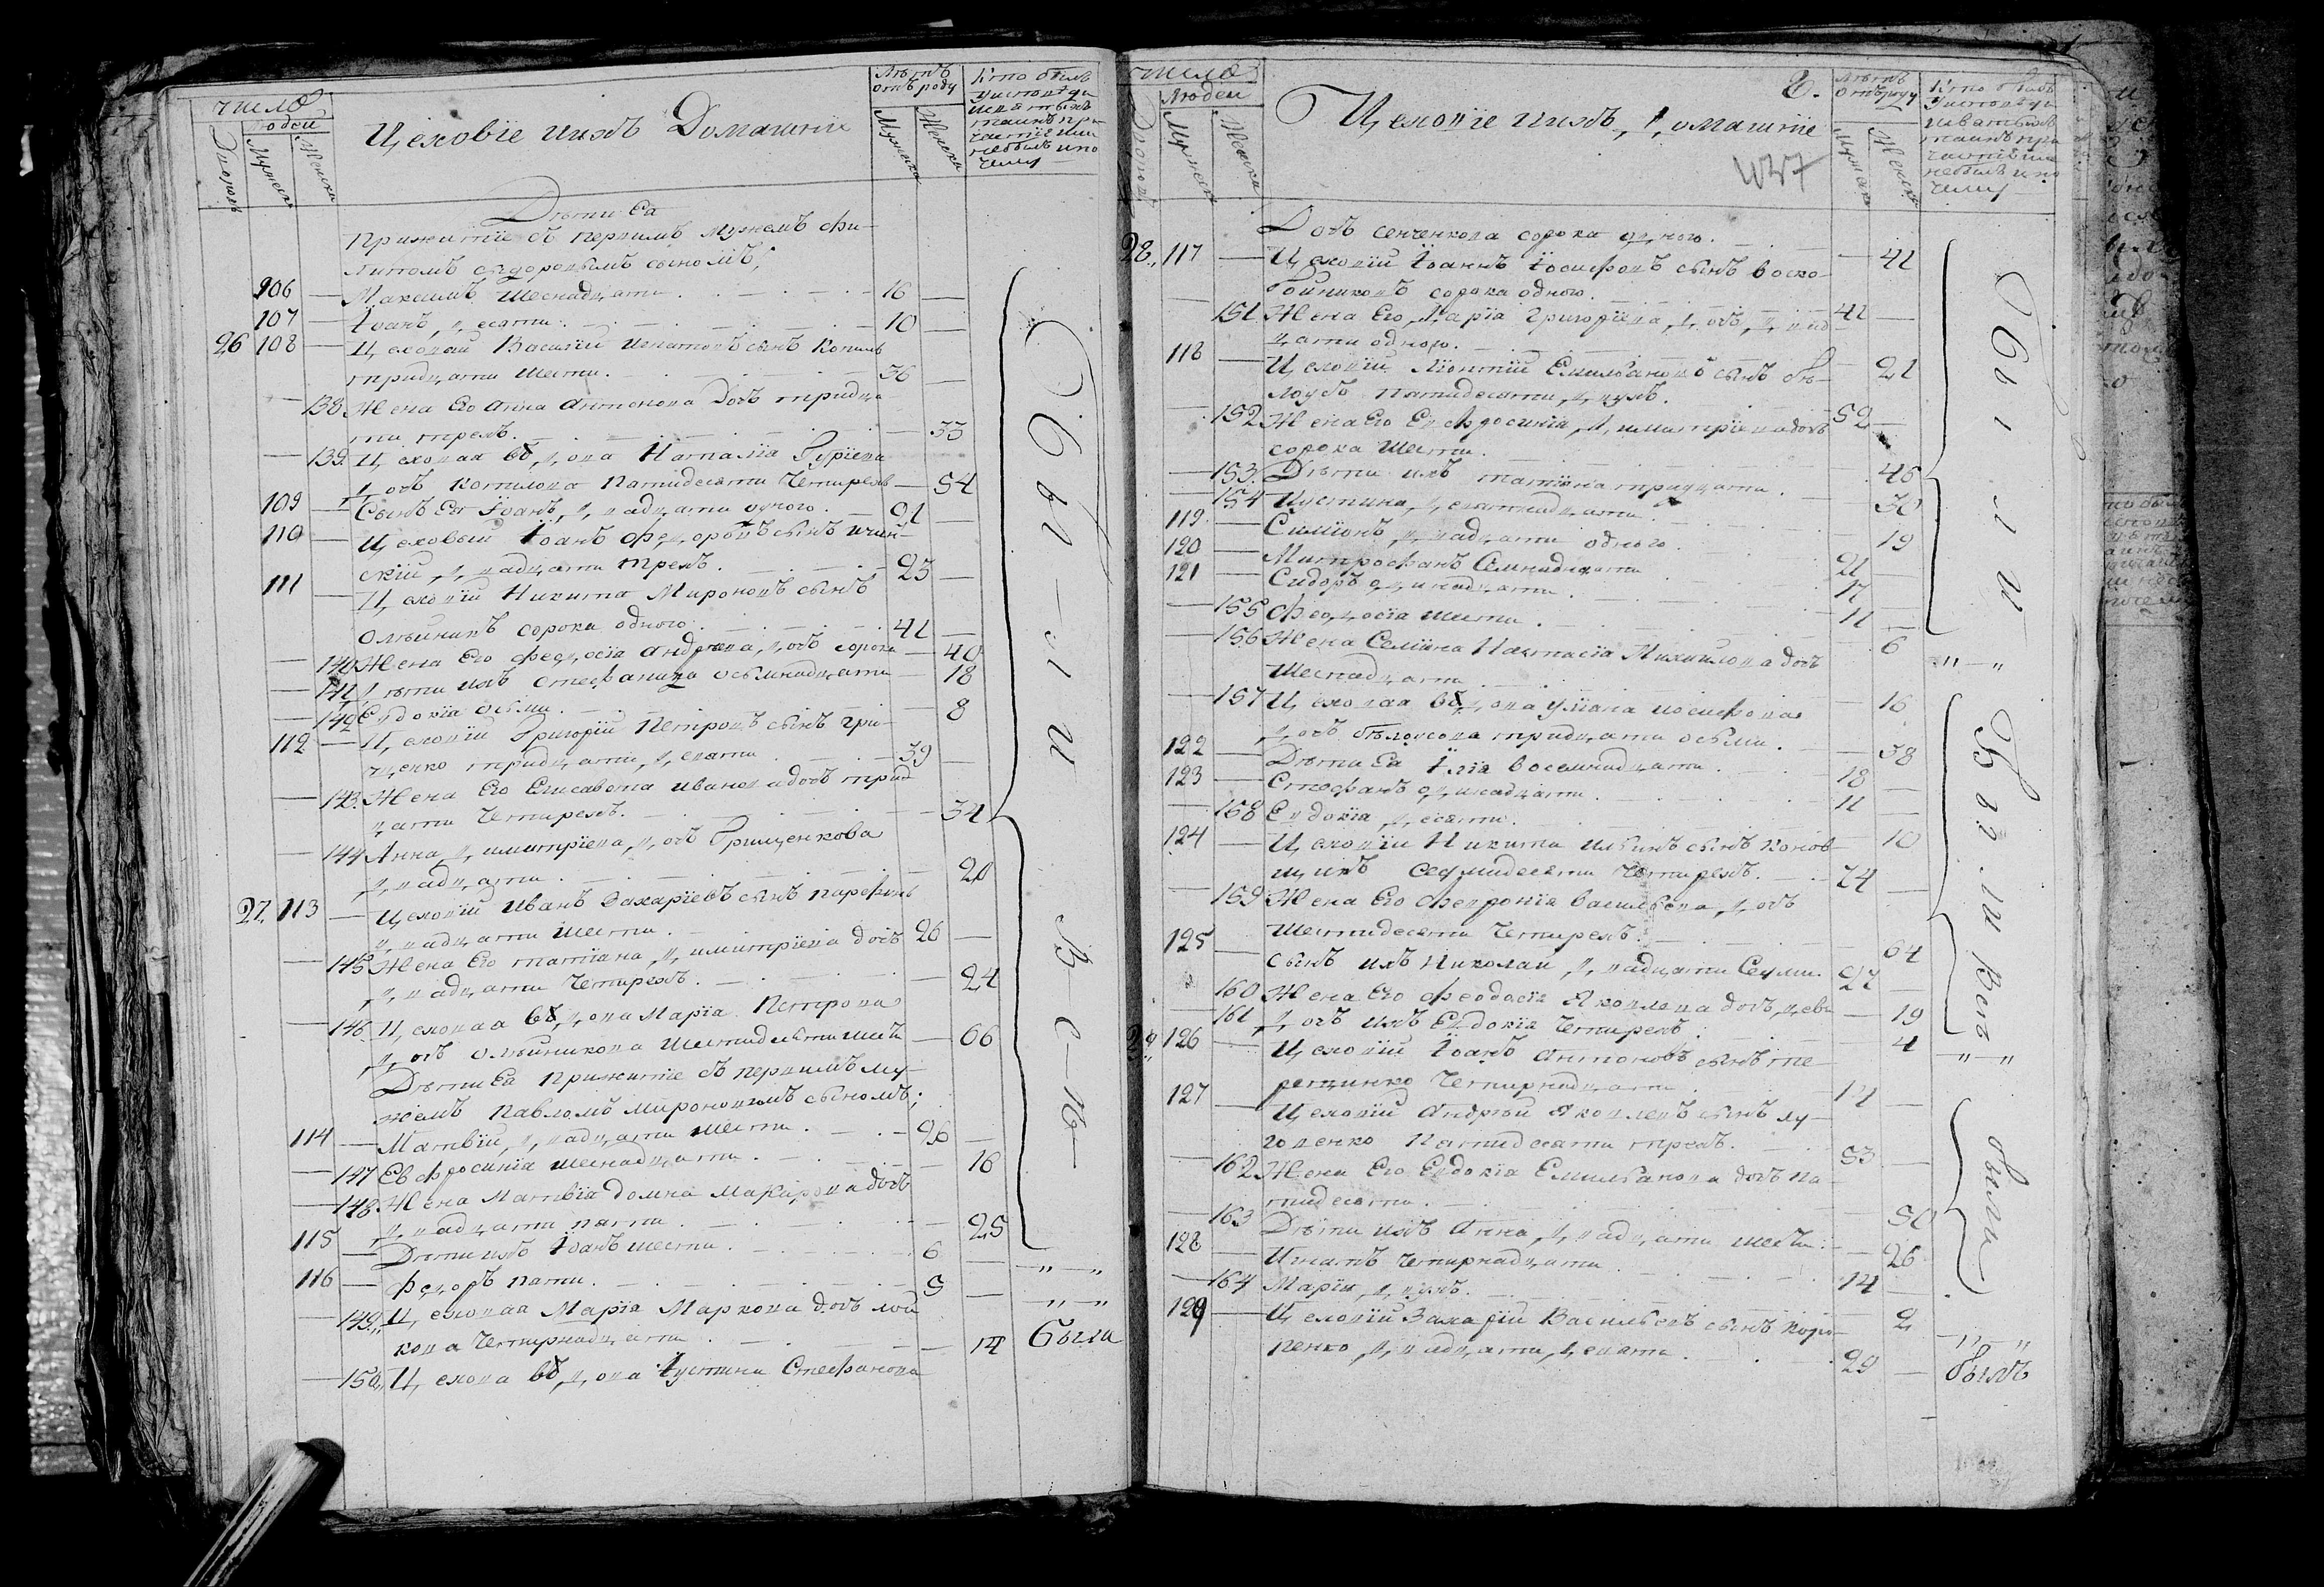 число
людей
Дворовъ
Мужеска
Женска
Цеховіе ихъ Домашніе
Лѣтъ отъ роду
Мужеска
Женска
Кто былъ
у исповѣди
и святыхъ
таинъ при
частіе или
не былъ и по
чему
Дѣти Ея
Прижитіе съ первимъ мужемъ Фи-
липомъ сыдоровымъ сыномъ;
106 — Максимъ шеснадцати — 16 —
107 — Іоанъ, десяти — 10 —
26 108 — Цеховий Василій Игнатовъ сынъ Копилъ
тридцати шести. 36 —
— 138 Жена Его Анна Антонова дочь тридца
ти трехъ. — 33
— 139 Цеховая вдова Наталія Гуріева
дочь Копилова Патидесяти Четирехъ — 54
109 — Сынъ Ея Іоанъ, двадцати одного. — 21 —
110 — Цеховый Іоанъ Федоровъ сынъ
скій двадцати трехъ. 23 —
111 — Цеховій Никита Мироновъ сынъ
Олѣйникъ сорока одного. 41 —
— 140 Жена Его Феодосія Андреева дочь сорока — 40
— 141 Дѣти ихъ Стефанида осьмнадцати — 18
— 142 Евдокія осьми. — 8
112 — Цеховій Григорій Петровъ сынъ Гри-
щенко тридцати девяти — 39 —
— 143 Жена Его Елисавета иванова дочь трид
цати Четирехъ. — 34
— 144 Анна Димитріева дочь Грищенкова
двадцати. — 20
27 113 — Цеховій Иванъ Захаріевъ сынъ Парфинъ
двадцати шести. 26 —
— 145 Жена Его татіана Димитріева дочь
двадцати Четирехъ. — 24
— 146 Цеховая вдова Марія Петрова
дочь олѣйникова шестидесяти шести — 66
Дѣти Ея Прижитіе съ первимъ му-
жемъ Павломъ Мироновимъ сыномъ;
114 — Матвій двадцати шести. — 26 —
— 147 Евфросинія шеснадцати — 16
— 148 Жена Матвія домна Макарова дочь
двадцати пяти — 25
115 — Дѣти ихъ Іоанъ шести. 6 — „—„
116 — Федоръ пяти. 5 — „—„
— 149 Цеховая Марія Маркова дочь
кова Четирнадцати — 14 была
— 150 Цехова вдова Іустина Стефанова
Были
Всѣ
число
людей
Дворовъ
Мужеска
Женска
Цеховіе ихъ Домашніе
Лѣтъ отъ роду
Мужеска
Женска
Кто былъ
у исповѣди
и святыхъ
таинъ при
частіе или
не былъ и по
чему
Дочь сенченкова сорока одного. — 41
28 117 — Цеховій Іоаннъ Іосифовъ сынъ воско-
бойниковъ сорока одного. 41 —
— 151 Жена Его Марія Григоріева дочь двад-
цати одного. — 21
118 — Цеховій Леонтій Емильановъ сынъ бѣ-
лоусъ патидесяти двухъ. 52 —
— 152 Жена Его Евфросинія Димитріева дочь
сорока шести. — 46
— 153 Дѣти ихъ татіана тридцати. — 30
— 154 Іустина девятнадцати — 19
119 — Симіонъ двадцати одного. 21
120 — Митрофанъ Семнадцати 17
121 — Сидоръ одинадцати. 11 —
— 155 Феодосія шести. — 6 „—„
— 156 Жена Семіона Настасія Михайлова дочь
шеснадцати — 16
— 157 Цеховая вдова Уліана иосифова
дочь бѣлоусова тридцати осьми. — 38
122 — Дѣти Ея Ілія восемнадцати 18
123 — Стефанъ одинадцати. 11 —
— 158 Евдокія десяти. — 10
124 — Цеховій Никита ильинъ сынъ Конов
щикъ Седмидесяти Четирехъ. 74 —
— 159 Жена Его Февронія васильева дочь
Шестидесяти Четирехъ. — 64
125 — Сынъ ихъ Николай двадцати Седми. 27
— 160 Жена Его Феодосія Яковлева дочь девят — 19
— 161 Дочь ихъ Евдокія Четирехъ. — 4 „—„
29 126 — Цеховій Іоанъ Антоновъ сынъ те
рещенко Четирнадцати 14 —
127 — Цеховій Андрей Яковлевъ сынъ лу-
говенко Патидесяти трехъ. 53 —
— 162 Жена Его Евдокія Емильанова дочь па
тидесяти — 50
— 163 Дѣти ихъ Анна двадцати шести. — 26
128 — Игнатъ Четирнадцати 14
— 164 Марія двухъ. — 2 „—„
129 — Цеховій Захарій Васильевъ сынъ
ненко двадцати девяти. 29 — былъ
Были
Были Всѣ
были